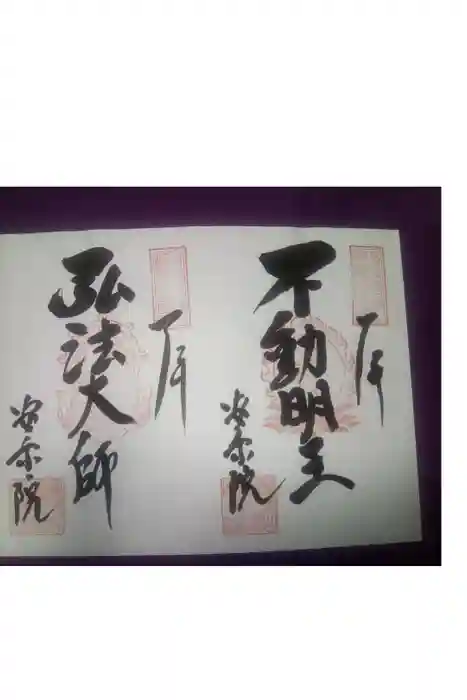 拝
不動明王
安楽院
拝
弘法大師
安楽院